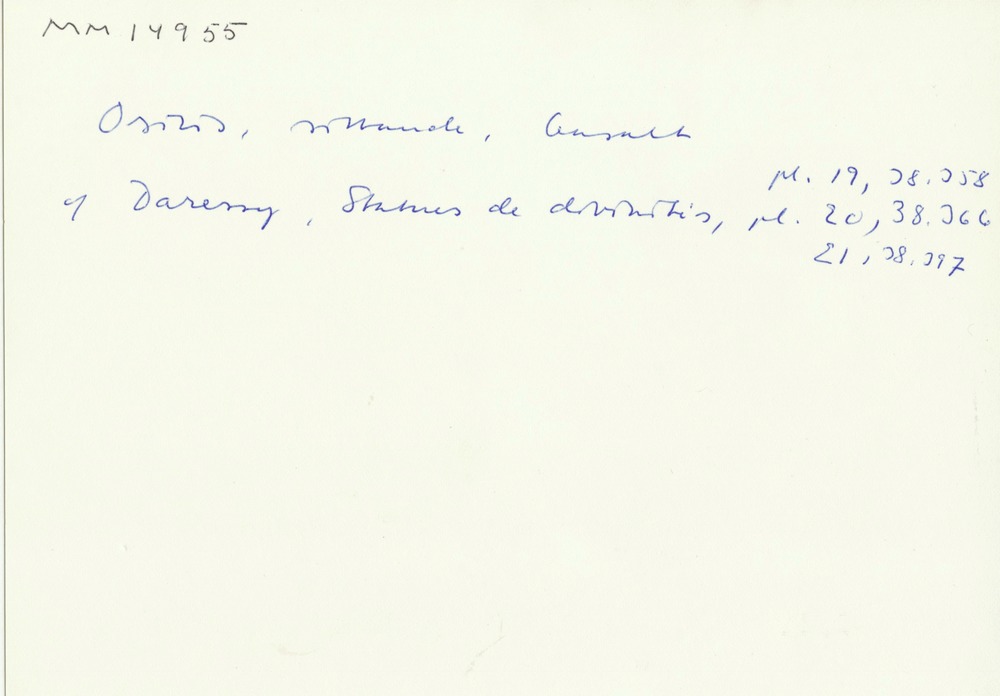 MM 14955
Osiris, sittande,
pl. 19, 38.358
cf Daressy, Statues de divinités, pl. 20, 38.366
21, 38.397